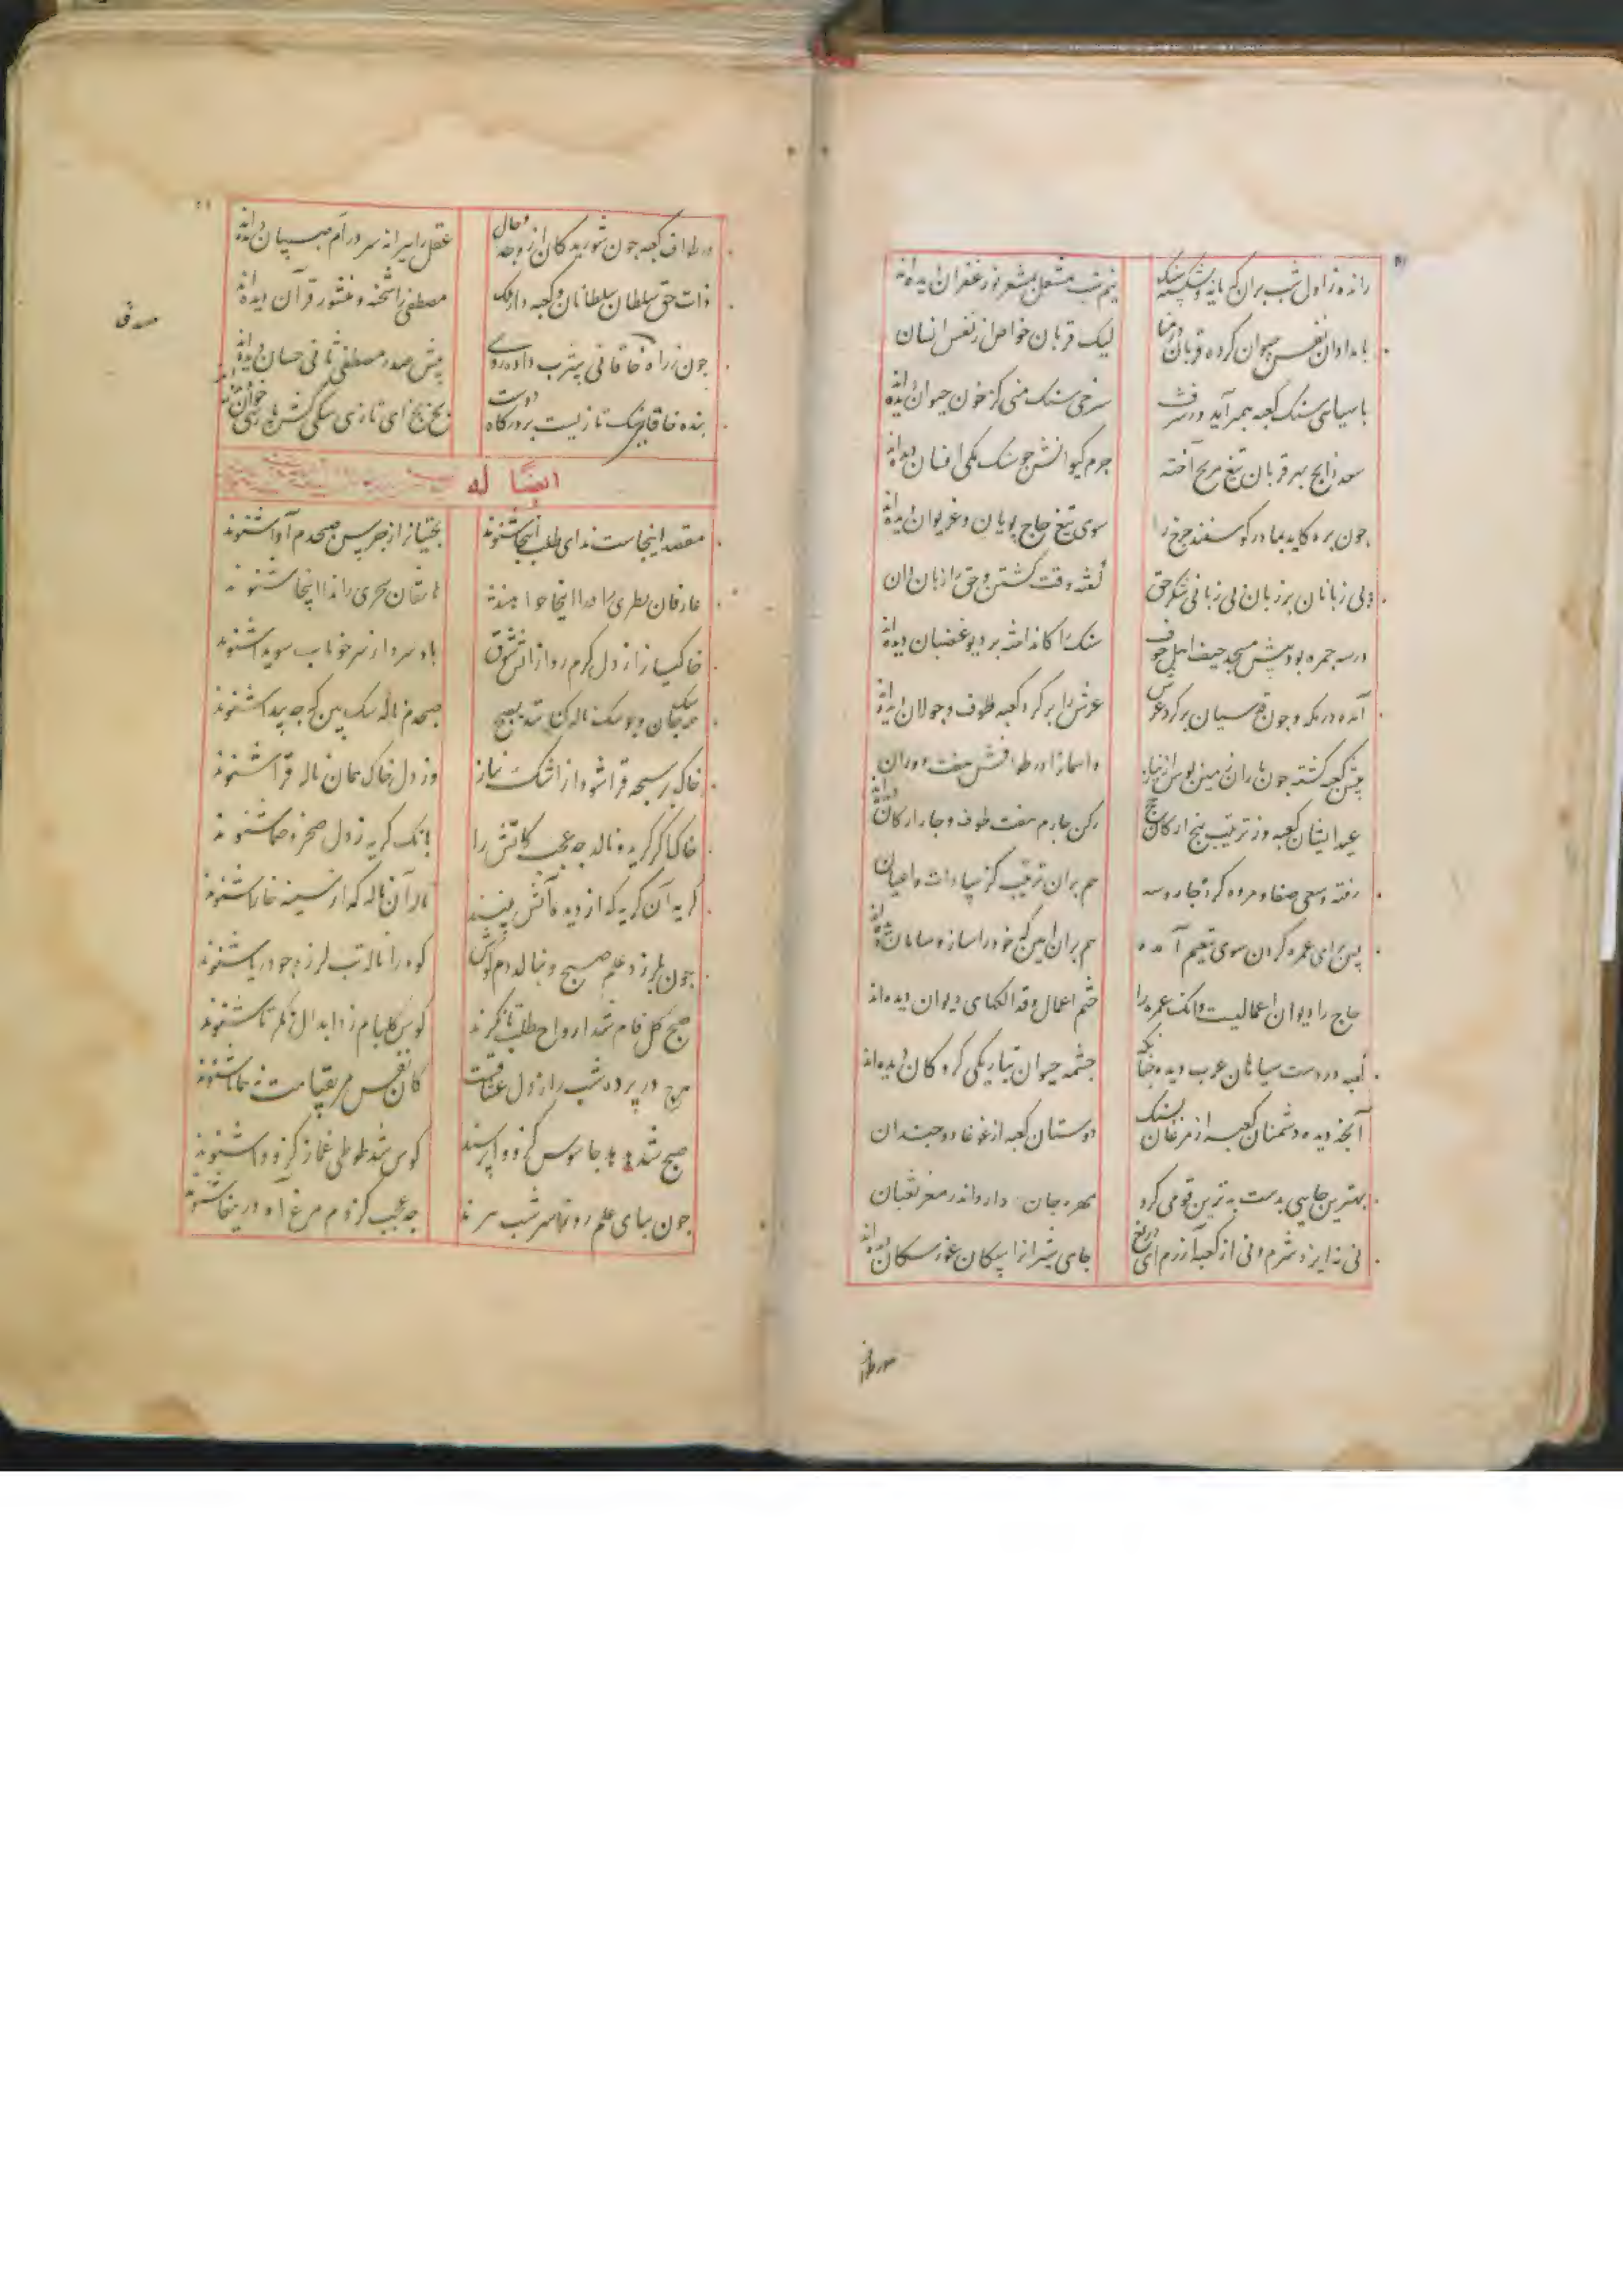 رانده ز اول شب بران که پایه و بشکسته سنگ
نیم شب مشعل بمشعر نور غفران دیده‌اند
بامدادان نفس حیوان کرده قربان در منا
لیک قربان خواص از نفس انسان
با سیاهی سنک کعبه همبر آید در شرف
سرخی سنک منی کز خون حیوان دیده‌اند
سعد ذابح بهر قربان تیغ مریخ آخته
جرم کیوانش چو سنک مکی افسان دیده‌اند
چون بره کاید بمادر کوسفند چرخ را
سوی تیغ حاج پویان و غریوان دیده‌اند
بی زبانان بر زبان بی زبانی شکر حق
گفته وقت کشتن و حق را زبان دان
در سه جمره بوده پیش مسجد خیف اهل خوف
سنک را کانداخته بر دیو غضبان دیده‌اند
آمده در مکه و چون قدسیان بر گرد عرش
عرش را بر گرد کعبه طوف و جولان دیده‌اند
پیش کعبه گشته چون باران زمین بوس از نیاز
و آسمان را در طوافش هفت دوران دیده‌اند
عید ایشان کعبه وز ترتیب پنج ارکان حج
رکن چارم هفت طوف و چار ارکان
رفته و سعی صفا و مروه کرده چار و سه
هم بران ترتیب کز سادات و اعیان
پس برای عمره کردن سوی تنعیم آمده
هم بران آیین که خود را ساز و سامان دیده‌اند
حاج را دیوان اعمالست وانک عمره را
ختم اعمال و فذالکهای دیوان دیده‌اند
کعبه در دست سیاهان عرب دیده چنانکه
چشمه حیوان بتاریکی گروگان دیده‌اند
آنچه دیده دشمنان کعبه از مرغان بسنک
دوستان کعبه از غوغا دو چندان
بهترین جایی بدست بدترین قومی گرو
مهره جان دارو اندر مغز ثعبان
نی ز ایزد شرم و نی از کعبه آزرم ای دریغ
جای شیران را سکان غور سکان دیده‌اند
در طواف
در طواف کعبه چون شوریدگان از وجد و حال
عقل را پیرانه سر در ام صبیان دیده‌اند
ذات حق سلطان سلطانان و کعبه دار ملک
مصطفی را شحنه و منشور قرآن دیده‌اند
چون ز راه خاقانی یثرب داده روی
پیش صدر مصطفی ثانی حسان دیده‌اند
بنده خاقانی سک تازیست بر درگاه دوست
بخ بخ ای تازی سکی کش پارسی خوان دیده‌اند
ایضا له
مقصد اینجاست ندای طلب اینجا شنوند
بختیان را ز جرس صبحدم آوا شنوند
عارفان نظری را اینجا خواهند
هاتفان سحری را ندا اینجا شنوند
خاکیان را ز دل کرم روان آتش شوق
باد سرد از سر خوناب سویدا شنوند
صبحدم ناله سک بین که چه پیدا شنوند
خاک پر سبحه قرا شود از اشک نیاز
وز دل خاک همان ناله قرا شنوند
خاک گر گرید و نالد چه عجب کاتش را
بانک گریه ز دل صخره صما شنوند
گریه آن گریه که از دیده آتش بینند
ناله آن ناله که از سینه خارا شنوند
چون بلرزد علم صبح و بنالد دم کوس
کوه را ناله تب لرزه چو دریا شنوند
صبح گلفام شد ارواح طلب تا نگرند
کوس گلبام زد ابدال نگر تا شنوند
کان نفس مر بقیامت نه همانا شنوند
صبح شد هدهد جاسوس کزو واپرسند
کوس شد طوطی غماز کزو وا شنوند
چون بپای علم روز سر شب ببرند
چه عجب کز دم مرغ آه دریغا شنوند
صدق